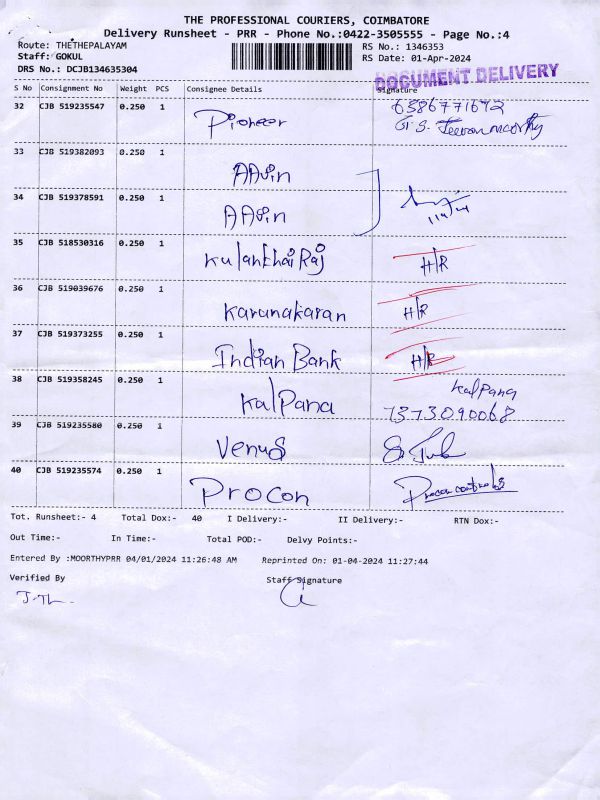 THE PROFESSIONAL COURIERS, COIMBATORE
Delivery Runsheet - PRR - Phone No.:0422-3505555 - Page No.:4
Route: THETHEPALAYAM RS No.: 1346353
Staff: GOKUL RS Date: 01-Apr-2024
DRS No.: DCJB134635304
DOCUMENT DELIVERY
S No Consignment No Weight PCS Consignee Details Signature
32 CJB 519235547 0.250 1 Pioneer 6386771692
G.S.
33 CJB 519382093 0.250 1 AAvin
34 CJB 519378591 0.250 1 AAvin 1/4/24
35 CJB 518530316 0.250 1 KulanthaiRaj H/R
36 CJB 519039676 0.250 1 Karunakaran H/R
37 CJB 519373255 0.250 1 Indian Bank H/R
38 CJB 519358245 0.250 1 Kalpana Kalpana
7373090068
39 CJB 519235580 0.250 1 Venus
40 CJB 519235574 0.250 1 Procon
Tot. Runsheet:- 4 Total Dox:- 40 I Delivery:- II Delivery:- RTN Dox:-
Out Time:- In Time:- Total POD:- Delvy Points:-
Entered By :MOORTHYPRR 04/01/2024 11:26:48 AM Reprinted On: 01-04-2024 11:27:44
Verified By Staff Signature